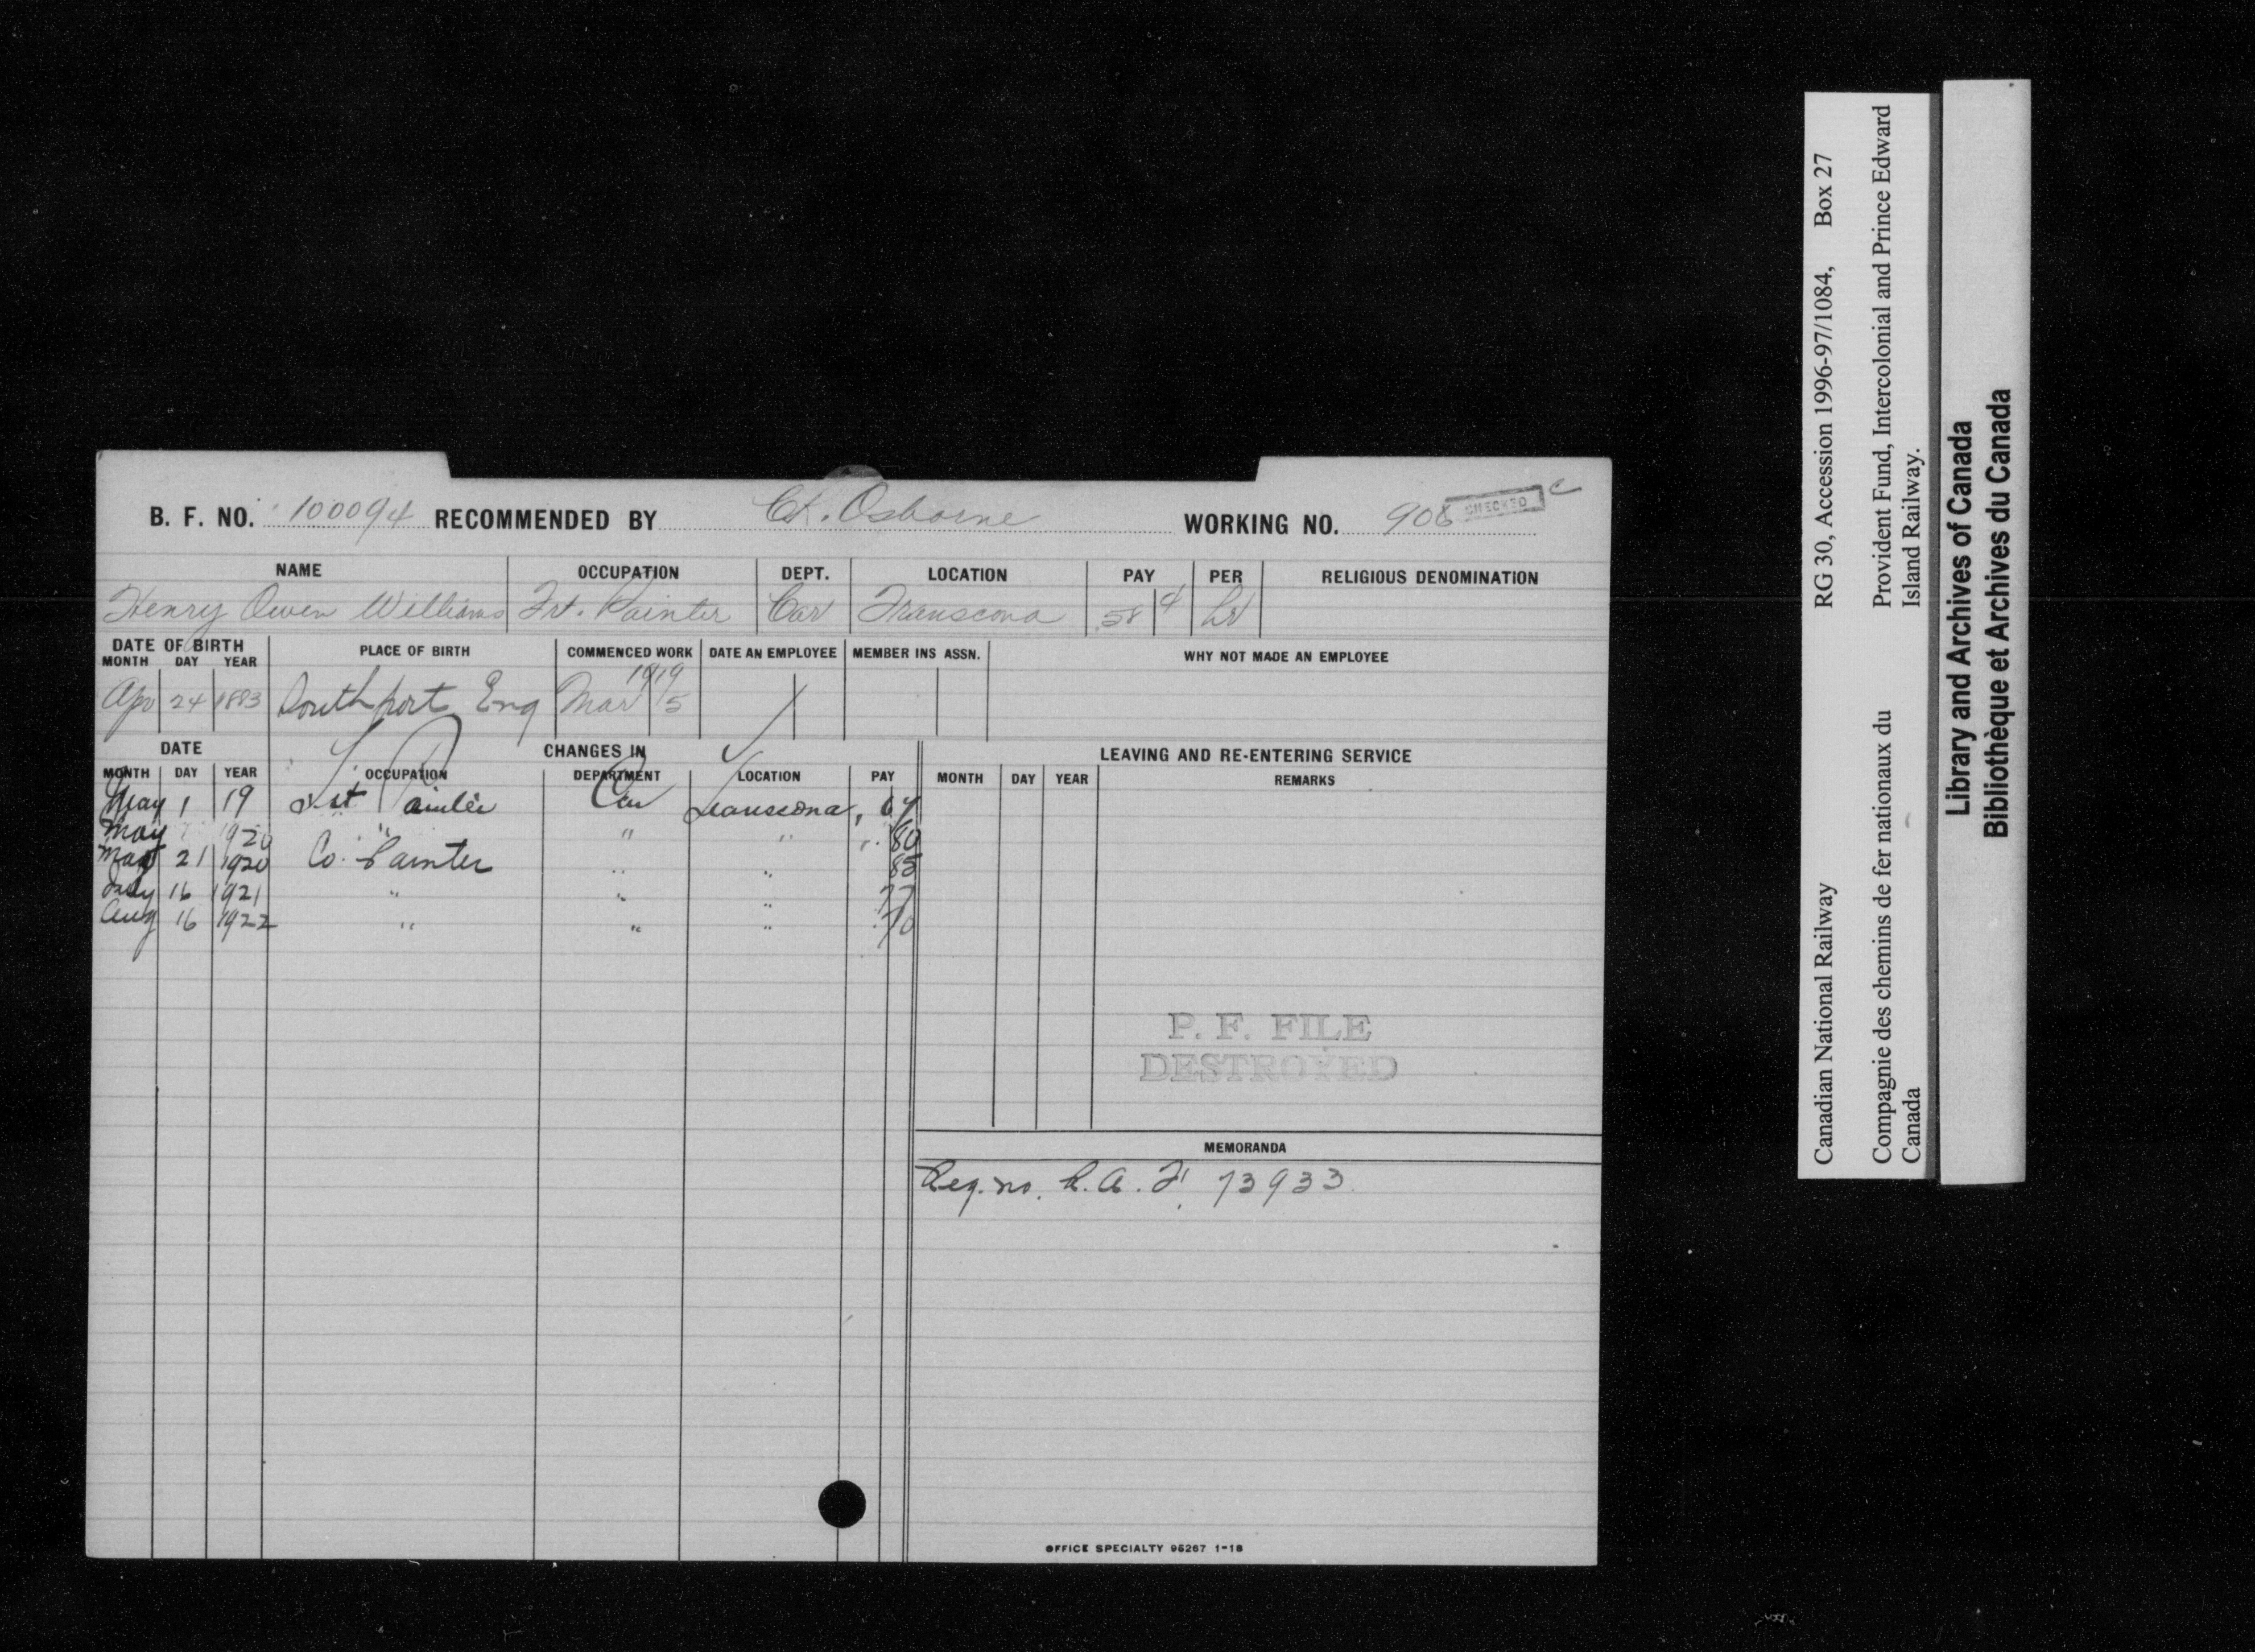 B. F. NO. 100094 RECOMMENDED BY Ct. Osborne WORKING NO. 906 CHECKED c
NAME OCCUPATION DEPT. LOCATION PAY PER RELIGIOUS DENOMINATION
Henry Owen Williams Frt. Painter Car Transcona .58 ¢ hr
DATE OF BIRTH PLACE OF BIRTH COMMENCED WORK DATE AN EMPLOYEE MEMBER INS ASSN. WHY NOT MADE AN EMPLOYEE
MONTH DAY YEAR
1919
Apr 24 1883 Southport Eng Mar 5
DATE CHANGES IN LEAVING AND RE-ENTERING SERVICE
MONTH DAY YEAR OCCUPATION DEPARTMENT LOCATION PAY MONTH DAY YEAR REMARKS
May 1 19 Frt Painter Car Transcona
May 1920 " " " .80
May 21 1920 Co. Painter " " 85
July 16 1921 " " " 77
Aug 16 1922 " " " .70
P. F. FILE
DESTROYED
MEMORANDA
Reg. no. R.A.F. 73933
OFFICE SPECIALTY 95267 1-18
Canadian National Railway RG 30, Accession 1996-97/1084, Box 27
Compagnie des chemins de fer nationaux du Canada
Provident Fund, Intercolonial and Prince Edward Island Railway.
Library and Archives of Canada
Bibliothèque et Archives du Canada